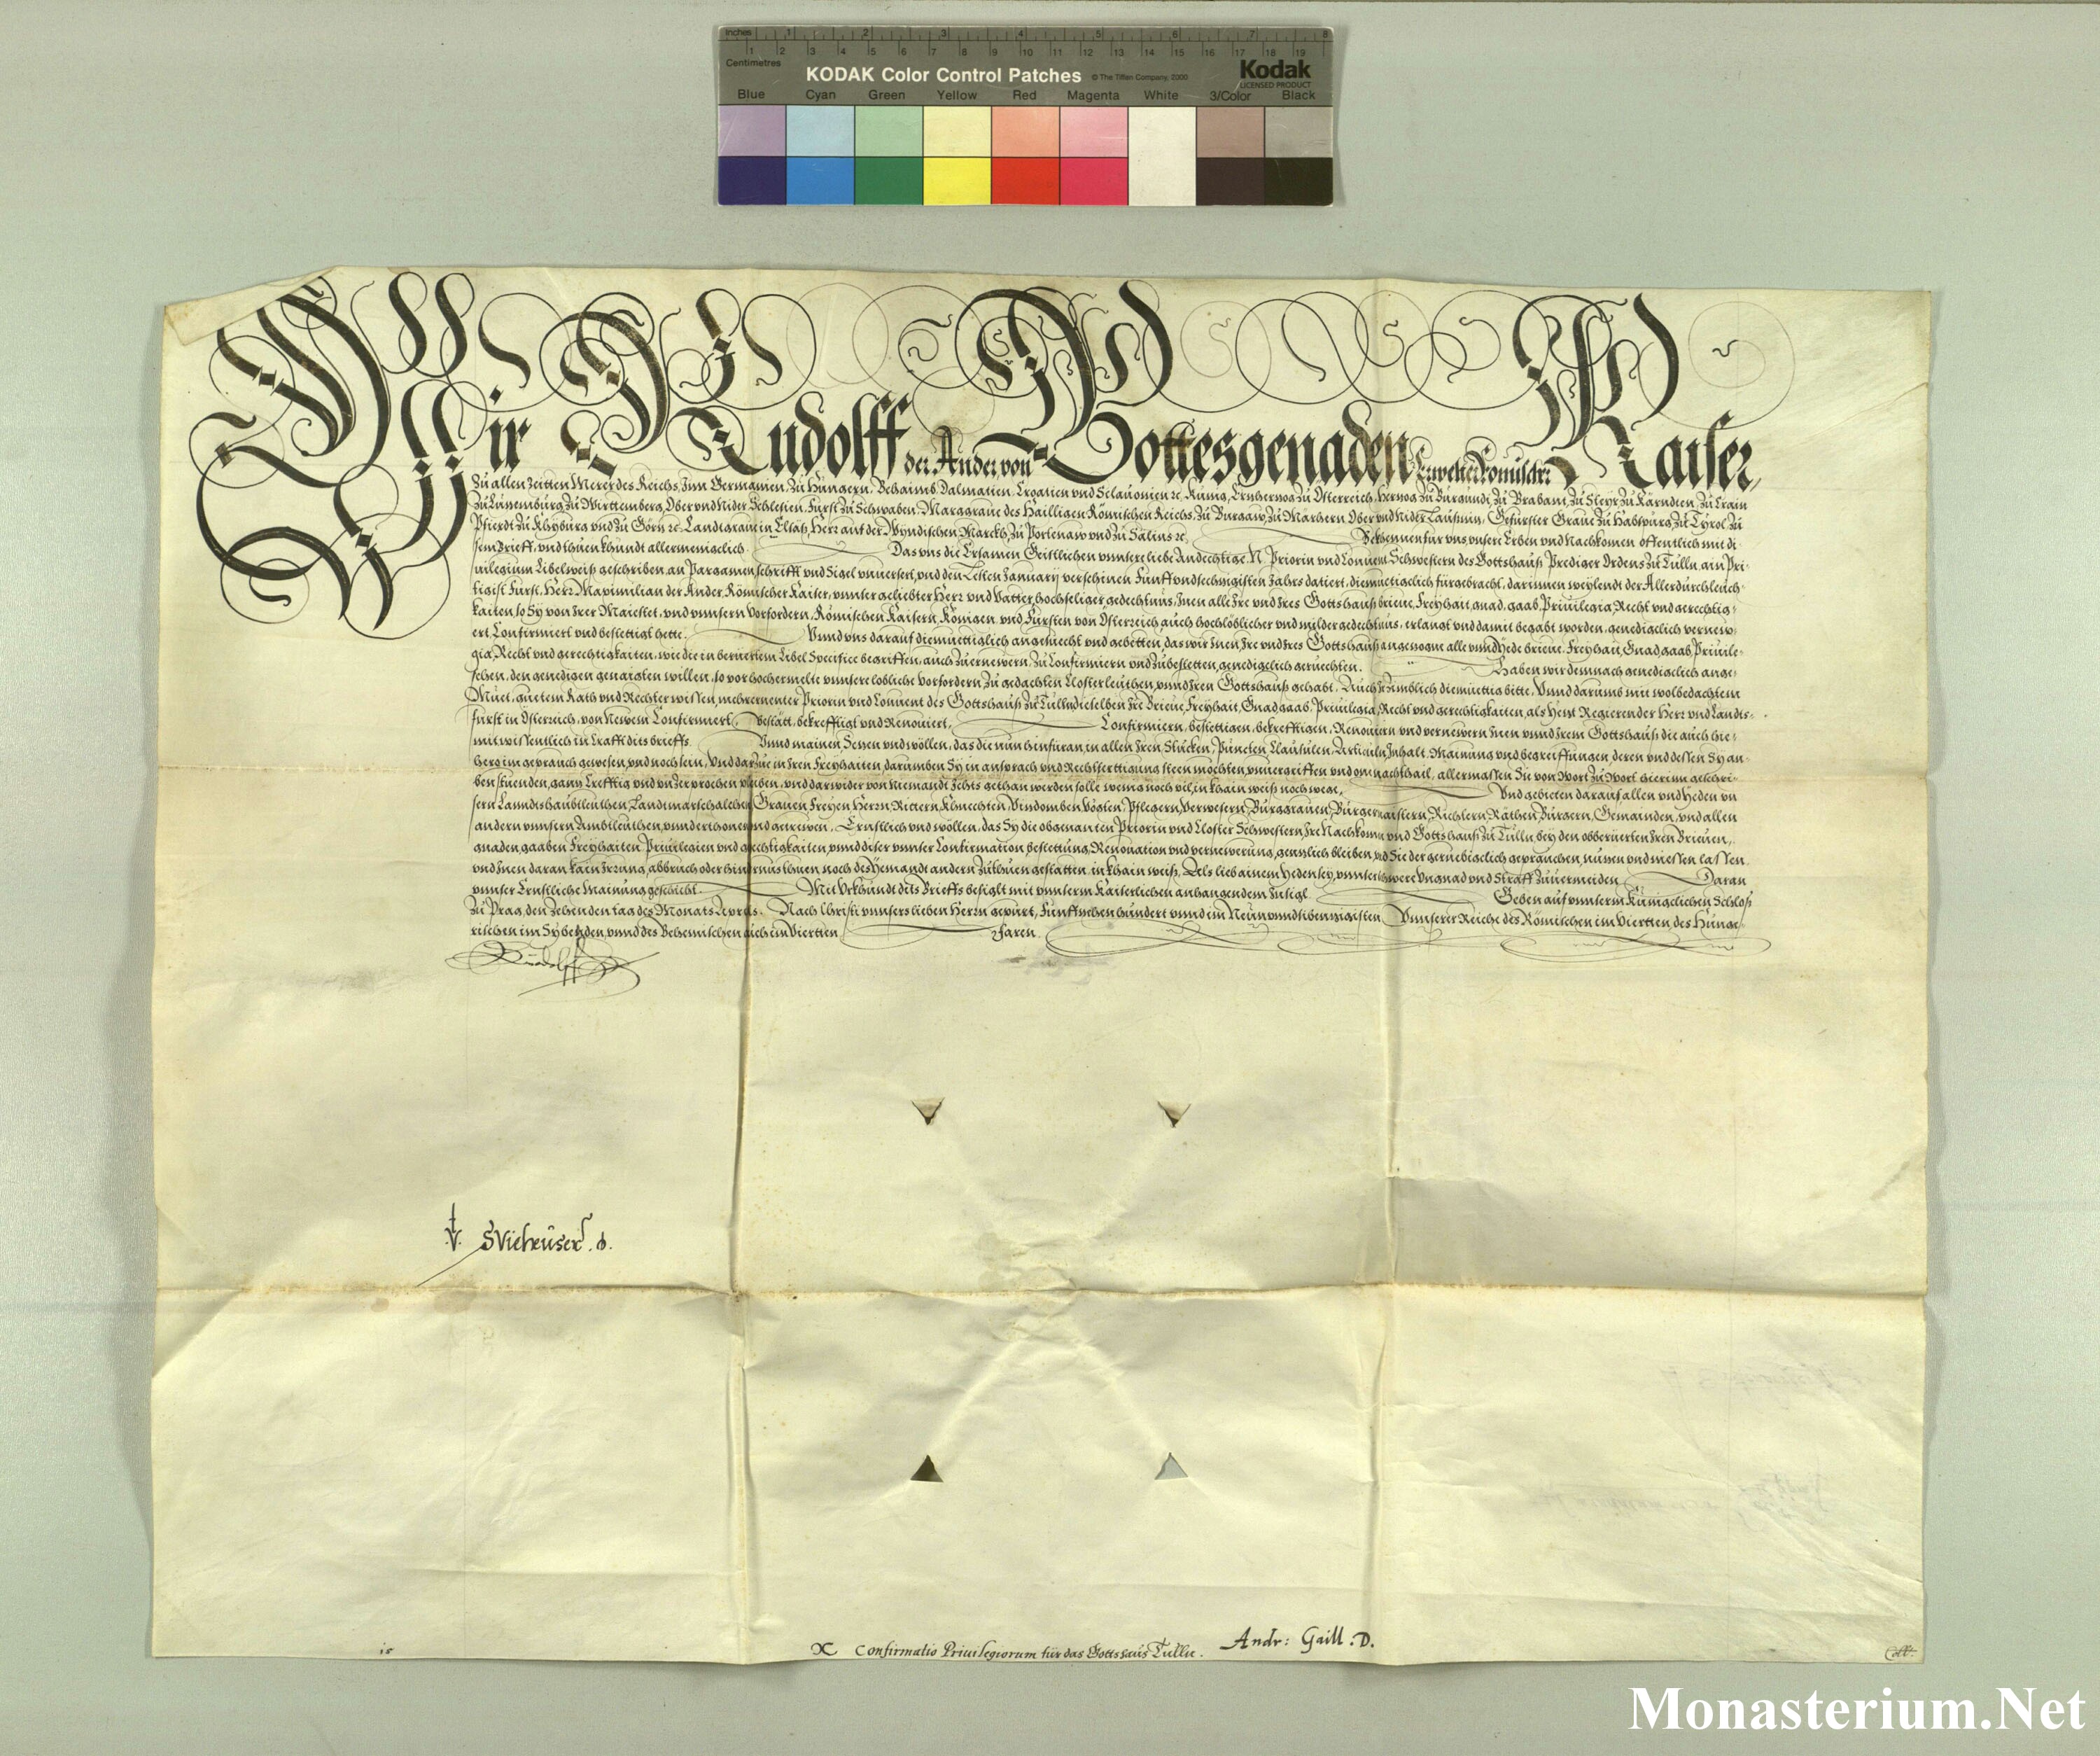 Inches 1 2 3 4 5 6 7 8
Centimetres 1 2 3 4 5 6 7 8 9 10 11 12 13 14 15 16 17 18 19
KODAK Color Control Patches © The Tiffen Company, 2000 Kodak
LICENSED PRODUCT
Blue Cyan Green Yellow Red Magenta White 3/Color Black
Wir Rudolff der Ander von Gottes genaden Erwelter Römischer Kaiser,
Zu allen Zeitten Merer des Reichs, Inn Germanien, Zu Hungern, Behaimb, Dalmatien, Croatien vnd Sclauonien ꝛc. Künig, Ertzhertzog zu Osterreich, Hertzog zu Burgundi, zu Brabant, zu Steyr, zu Kärndten, zu Crain
Zu Lützemburg, zu Wirttemberg, Ober vnd Nider Schlesien, Fürst zu Schwaben, Marggraue des Hailligen Römischen Reichs, zu Burgaw, zu Märhern, Ober vnd Nider Laüsnitz, Gefürster Graue zu Habspurg, zu Tyrol, zu
Pfierdt, zu Khyburg vnd zu Görtz ꝛc. Landtgraue in Elsäß, Herr auf der Wyndischen Marckh, zu Portenaw vnd zu Salins ꝛc. Bekhennen für vns, vnsere Erben vnd Nachkomen öffentlich mit di-
sem Brieff, vnd thuen khundt allermenigclich. Das vns die Ersamen Geistlichen vnnsere liebe Andechtige N. Priorin vnd Conuent Schwestern des Gottshauß Prediger Ordens zu Tulln, ain Pri-
uilegium Libelweiß geschriben, an Pargamen, schrifft vnd Sigel vnuersert, vnd den Lesten January verschinen Fünffvndsechtzigisten Jahrs datiert, diemüetigclich fürgebracht, darinnen weylendt der Allerdurchleüch-
tigist Fürst, Herr Maximilian der Ander, Römischer Kaiser, vnnser geliebter Herr vnd Vatter, hochseliger gedechtnus, Inen alle Ire vnd Ires Gottshauß brieue, Freyhait, gnad, gaab, Priuilegia, Recht vnd gerechtig-
kaiten, so Sy von Irer Maiestet, vnd vnnsern Vorfordern, Römischen Kaisern, Königen, vnd Fürsten von Osterreich, auch hochlöblicher vnd milder gedechtnus, erlangt vnd damit begabt worden, genedigclich vernew-
ert, Confirmiert vnd bestettigt hette. Vnnd vns darauf diemüettigclich angerueft vnd gebetten, das wir Inen, Ire vnd Ires Gottshauß angezogne alle vnnd yede brieue, Freyhait, Gnad, gaab, Priuile-
gia, Recht vnd gerechtigkaiten, wie die in berüertem Libel Specifice begriffen, auch zuernewern, zu Confirmiern vnd zubestetten, genedigclich geruechten. Haben wir demnach genedigclich ange-
sehen, den genedigen genaigten willen, so vor hochermelte vnnsere lobliche Vorfordern, zu gedachten Closterleuthen, vnnd Iren Gottshauß gehabt, Auch Ir zimblich diemüettig bitte, Vnnd darumb mit wolbedachtem
Muet, guetem Rath vnd Rechter wissen, mehrernenter Priorin vnd Conuent des Gottshauß zu Tulln dieselben Ire Brieue, Freyhait, Gnad, gaab, Priuilegia, Recht vnd gerechtigkaiten, als yetzt Regierender Herr vnd Landts-
fürst in Osterreich, von Newem Confirmiert, Bestätt, bekrefftigt vnd Renouiert, Confirmiern, bestettigen, bekrefftigen, Renouiern vnd vernewern Inen vnnd Irem Gottshauß, die auch hie-
mit wissentlich in Crafft dits brieffs. Vnnd mainen, Setzen vnd wöllen, das die nun hinfüran, in allen Iren Stucken, Puncten, Clausulen, Articuln, Inhalt, Mainung vnd begreiffungen, deren vnd dessen Sy an-
hero im geprauch gewesen, vnd noch sein, Vnd darzue in Iren Freyhaiten, darumben Sy in ansprach vnd Rechtfertigung steen möchten, vnuergriffen vnd one nachthail, allermassen Sü von Wort zu Wort hierinn geschri-
ben stuenden, gantz Crefftig vnd vnzerprochen pleiben, vnd darwider von Niemandt Ichts gethan werden solle wenig noch vil, in khain weiß noch wege, Vnd gebieten darauf allen vnd yeden vn-
sern Lanndtshaubtleuthen, Landtmarschalchen, Grauen, Freyen, Herrn, Rittern, Khnechten, Vitzdomben, Vögten, Pflegern, Verwesern, Burggrauen, Burgermaistern, Richtern, Räthen, Bürgern, Gemainden, vnd allen
andern vnnsern Ambtleuthen, vnnderthonen vnd getrewen, Ernstlich vnd wöllen, das Sy die obgenanten Priorin vnd Closter Schwestern, Ire Nachkomen vnd Gottshauß zu Tulln, bey den obberüerten Iren Brieuen,
gnaden, gaaben, Freyhaiten, Priuilegien vnd gerechtigkaiten, vnnd diser vnnser Confirmation, bestettung, Renouation vnd vernewerung, genntzlich bleiben, vnd Sie der geruebigclich geprauchen, nutzen vnd niessen lassen,
vnd Inen daran kain Irrung, abbruch oder hindernus thuen, noch des yemandt andern zuthuen gestatten, in khain weiß, Als lieb ainem yeden sey, vnnser schwere Vngnad vnd Straff zuuermeiden. Daran
vnnser Ernstliche Mainung geschicht. Mit Vrkhundt dits Brieffs besiglt mit vnnserm Kaiserlichen anhangendem Insigl. Geben auf vnnserm Künigclichen Schloß
zu Prag, den Zehenden tag des Monats Aprilis. Nach Christi vnnsers lieben Herrn gepurt, Funffzehenhundert vnnd im Neünvnndsibentzigisten, Vnnserer Reiche des Römischen im Viertten, des Hunge-
rischen im Sybenden, vnnd des Behemischen auch im Viertten Jaren.
Rudolff
V. SVieheuser. D.
is
Confirmatio Priuilegiorum für das Gottshaus Tulln.
Andr: Gaill. D.
Coll.
Monasterium.Net